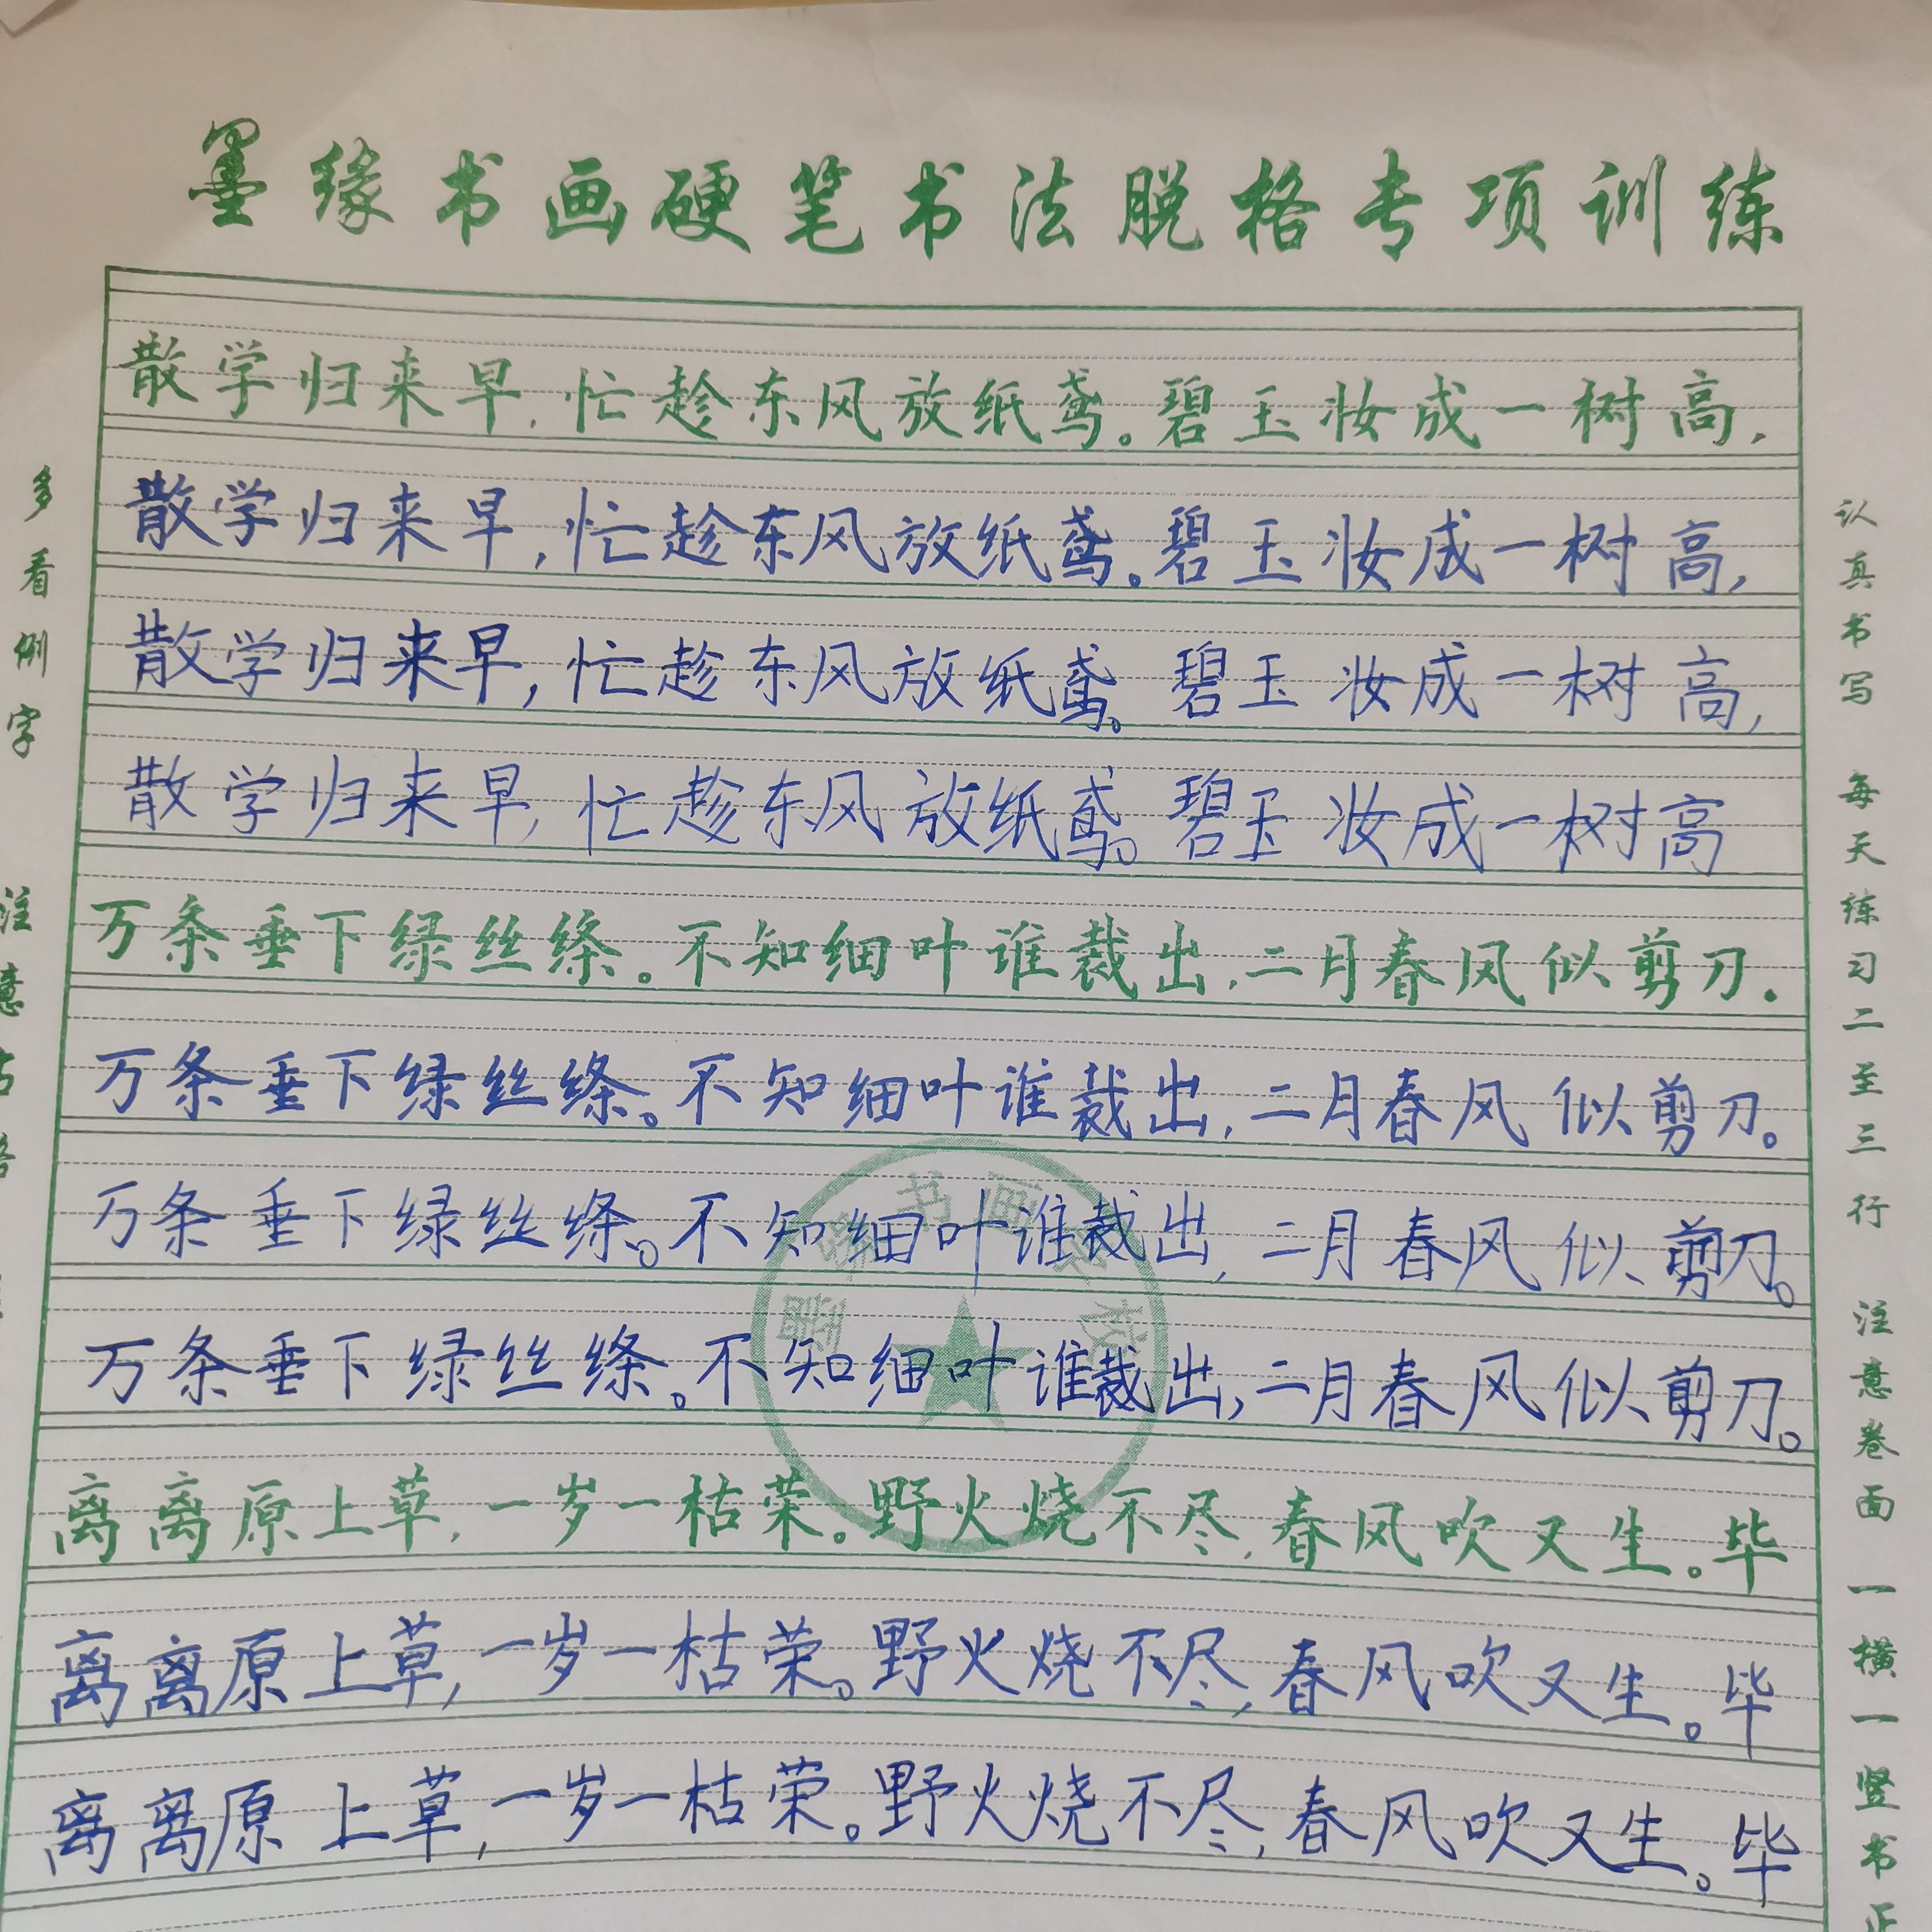 墨缘书画硬笔书法脱格专项训练
散学归来早,忙趁东风放纸鸢。碧玉妆成一树高,
散学归来早,忙趁东风放纸鸢。碧玉妆成一树高,
散学归来早,忙趁东风放纸鸢。碧玉妆成一树高,
散学归来早,忙趁东风放纸鸢。碧玉妆成一树高
万条垂下绿丝绦。不知细叶谁裁出,二月春风似剪刀.
万条垂下绿丝绦。不知细叶谁裁出,二月春风似剪刀。
万条垂下绿丝绦。不知细叶谁裁出,二月春风似剪刀。
万条垂下绿丝绦。不知细叶谁裁出,二月春风似剪刀。
离离原上草,一岁一枯荣。野火烧不尽,春风吹又生。毕
离离原上草,一岁一枯荣。野火烧不尽,春风吹又生。毕
离离原上草,一岁一枯荣。野火烧不尽,春风吹又生。毕
多看例字 注意
认真书写 每天练习二至三行 注意卷面 一横一竖书正
书画 校